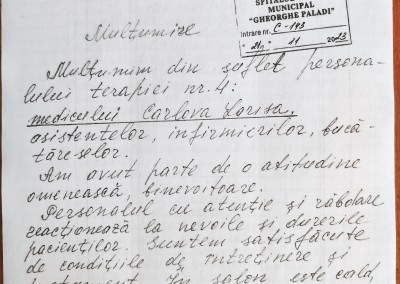 SPITALUL
MUNICIPAL
"GHEORGHE PALADI"
Intrare nr. C-193
"21" 11 2013
Mulțumire
Mulțumim din suflet persona-
lului terapiei nr. 4:
medicului Carlova Larisa,
asistentelor, infirmierilor, bucă-
tăreselor.
Am avut parte de o atitudine
omenească, binevoitoare.
Personalul cu atenție și răbdare
reacționează la nevoile și durerile
pacienților. Suntem satisfăcute
de condițiile de întreținere și
tratament. În salon este cald,